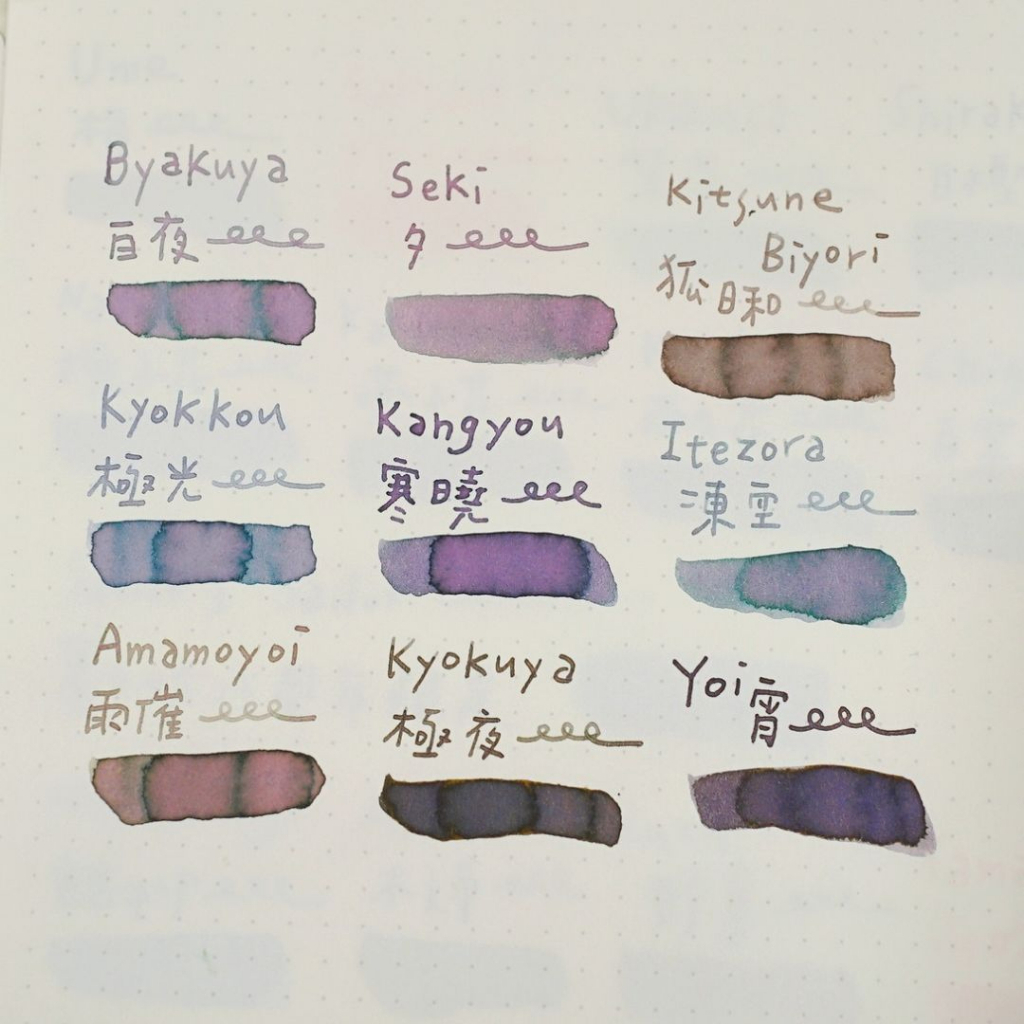 Byakuya
百夜
Seki
夕
Kitsune
Biyori
狐日和
Kyokkou
極光
Kangyou
寒曉
Itezora
凍空
Amamoyoi
雨催
Kyokuya
極夜
Yoi 宵